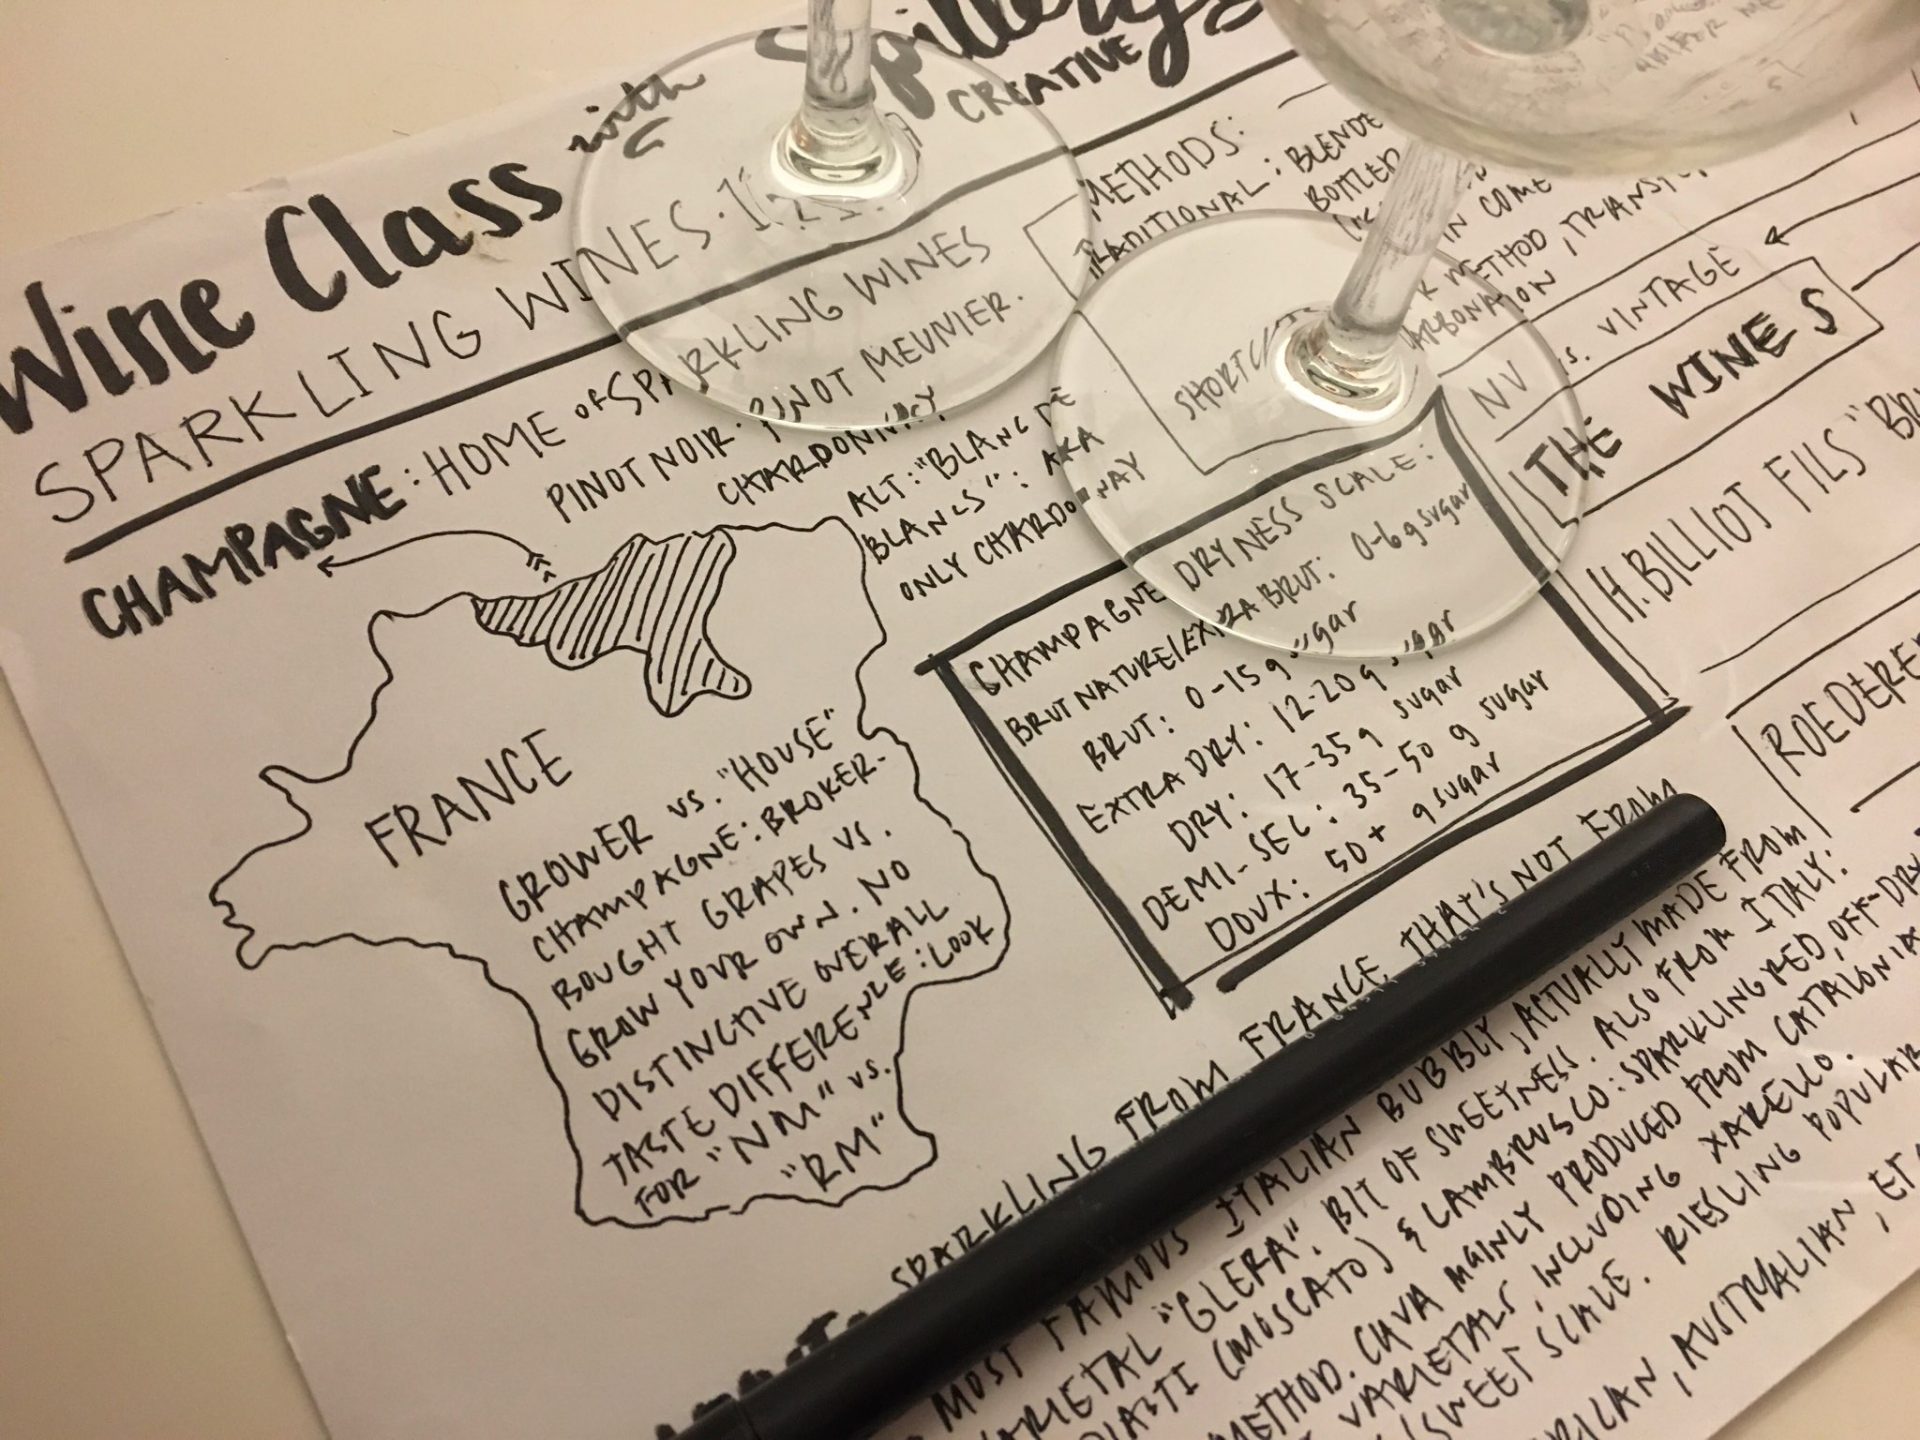 Wine Class with Spillery
CREATIVE
SPARKLING WINES
CHAMPAGNE: HOME OF SPARKLING WINES
PINOT NOIR. PINOT MEUNIER.
CHARDONNAY
ALT: "BLANC DE
BLANCS": AKA
ONLY CHARDONNAY
FRANCE
GROWER vs. "HOUSE"
CHAMPAGNE: BROKER-
BOUGHT GRAPES VS.
GROW YOUR OWN. NO
DISTINCTIVE OVERALL
TASTE DIFFERENCE: LOOK
FOR "NM" vs.
"RM"
METHODS:
TRADITIONAL: BLENDE
BOTTLED
IN COME
METHOD, TRANSF
CARBONATION
NV vs. VINTAGE
CHAMPAGNE DRYNESS SCALE:
BRUT NATURE/EXTRA BRUT: 0-6 g sugar
BRUT: 0-15 g sugar
EXTRA DRY: 12-20 g sugar
DRY: 17-35 g sugar
DEMI-SEC: 35-50 g sugar
DOUX: 50+ g sugar
THE WINES
H. BILLIOT FILS "BRU
ROEDERER
SPARKLING FROM FRANCE THAT'S NOT FROM
MOST FAMOUS ITALIAN BUBBLY, ACTUALLY MADE FROM
VARIETAL "GLERA". BIT OF SWEETNESS. ALSO FROM ITALY:
D'ASTI (MOSCATO) & LAMBRUSCO: SPARKLING RED, OFF-DRY
METHOD. CAVA MAINLY PRODUCED FROM CATALONIA
VARIETALS, INCLUDING XARELLO.
/SWEET SCALE. RIESLING POPULAR
, AUSTRALIAN, ET